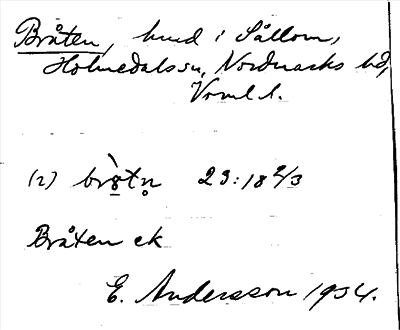 Bråten, hmd i Sållom,
Holmedals sn, Nordmarks hd,
Vrml l.
(2) brò̱tn̥ 23:18 2/3
Bråten ek
E. Andersson 1934.